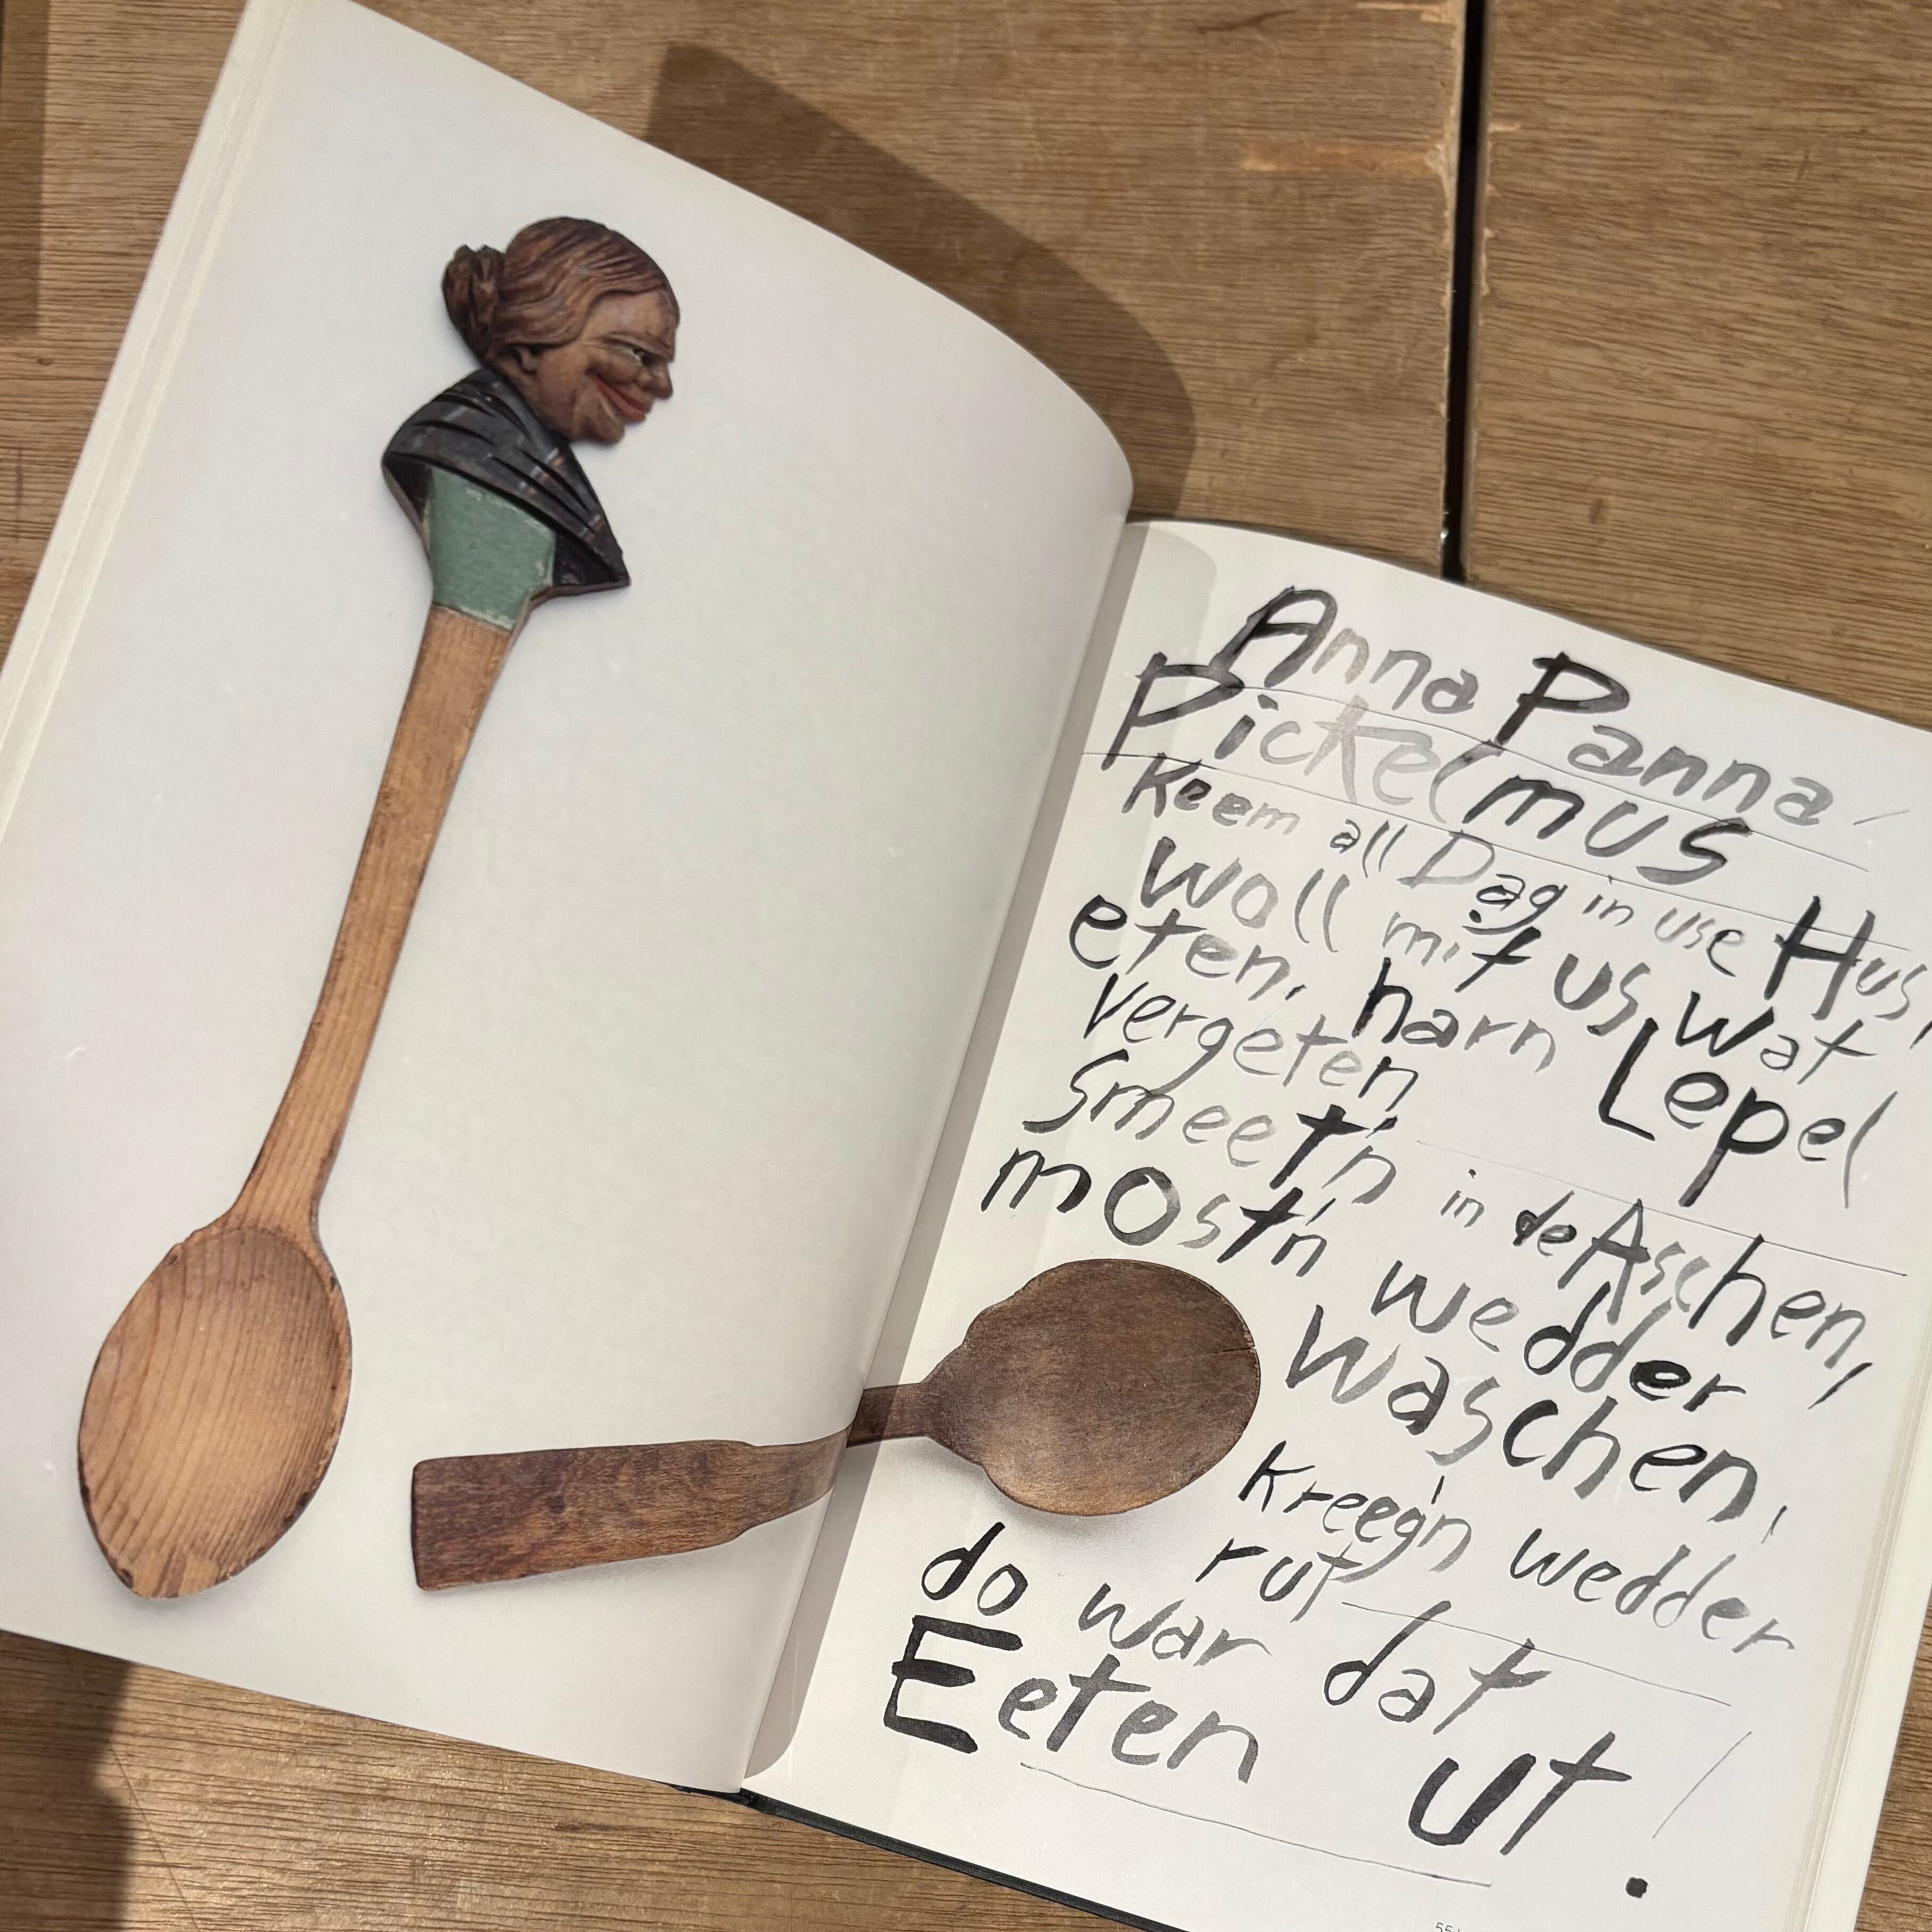 Anna Panna
Pickelmus
Keem all Dag in use Hus,
woll mit us wat
eten, harn Lepel
vergeten
Smeet'n in de Asschen,
most'n wedder
waschen,
Kreeg'n wedder
rut
do war dat
Eeten ut!